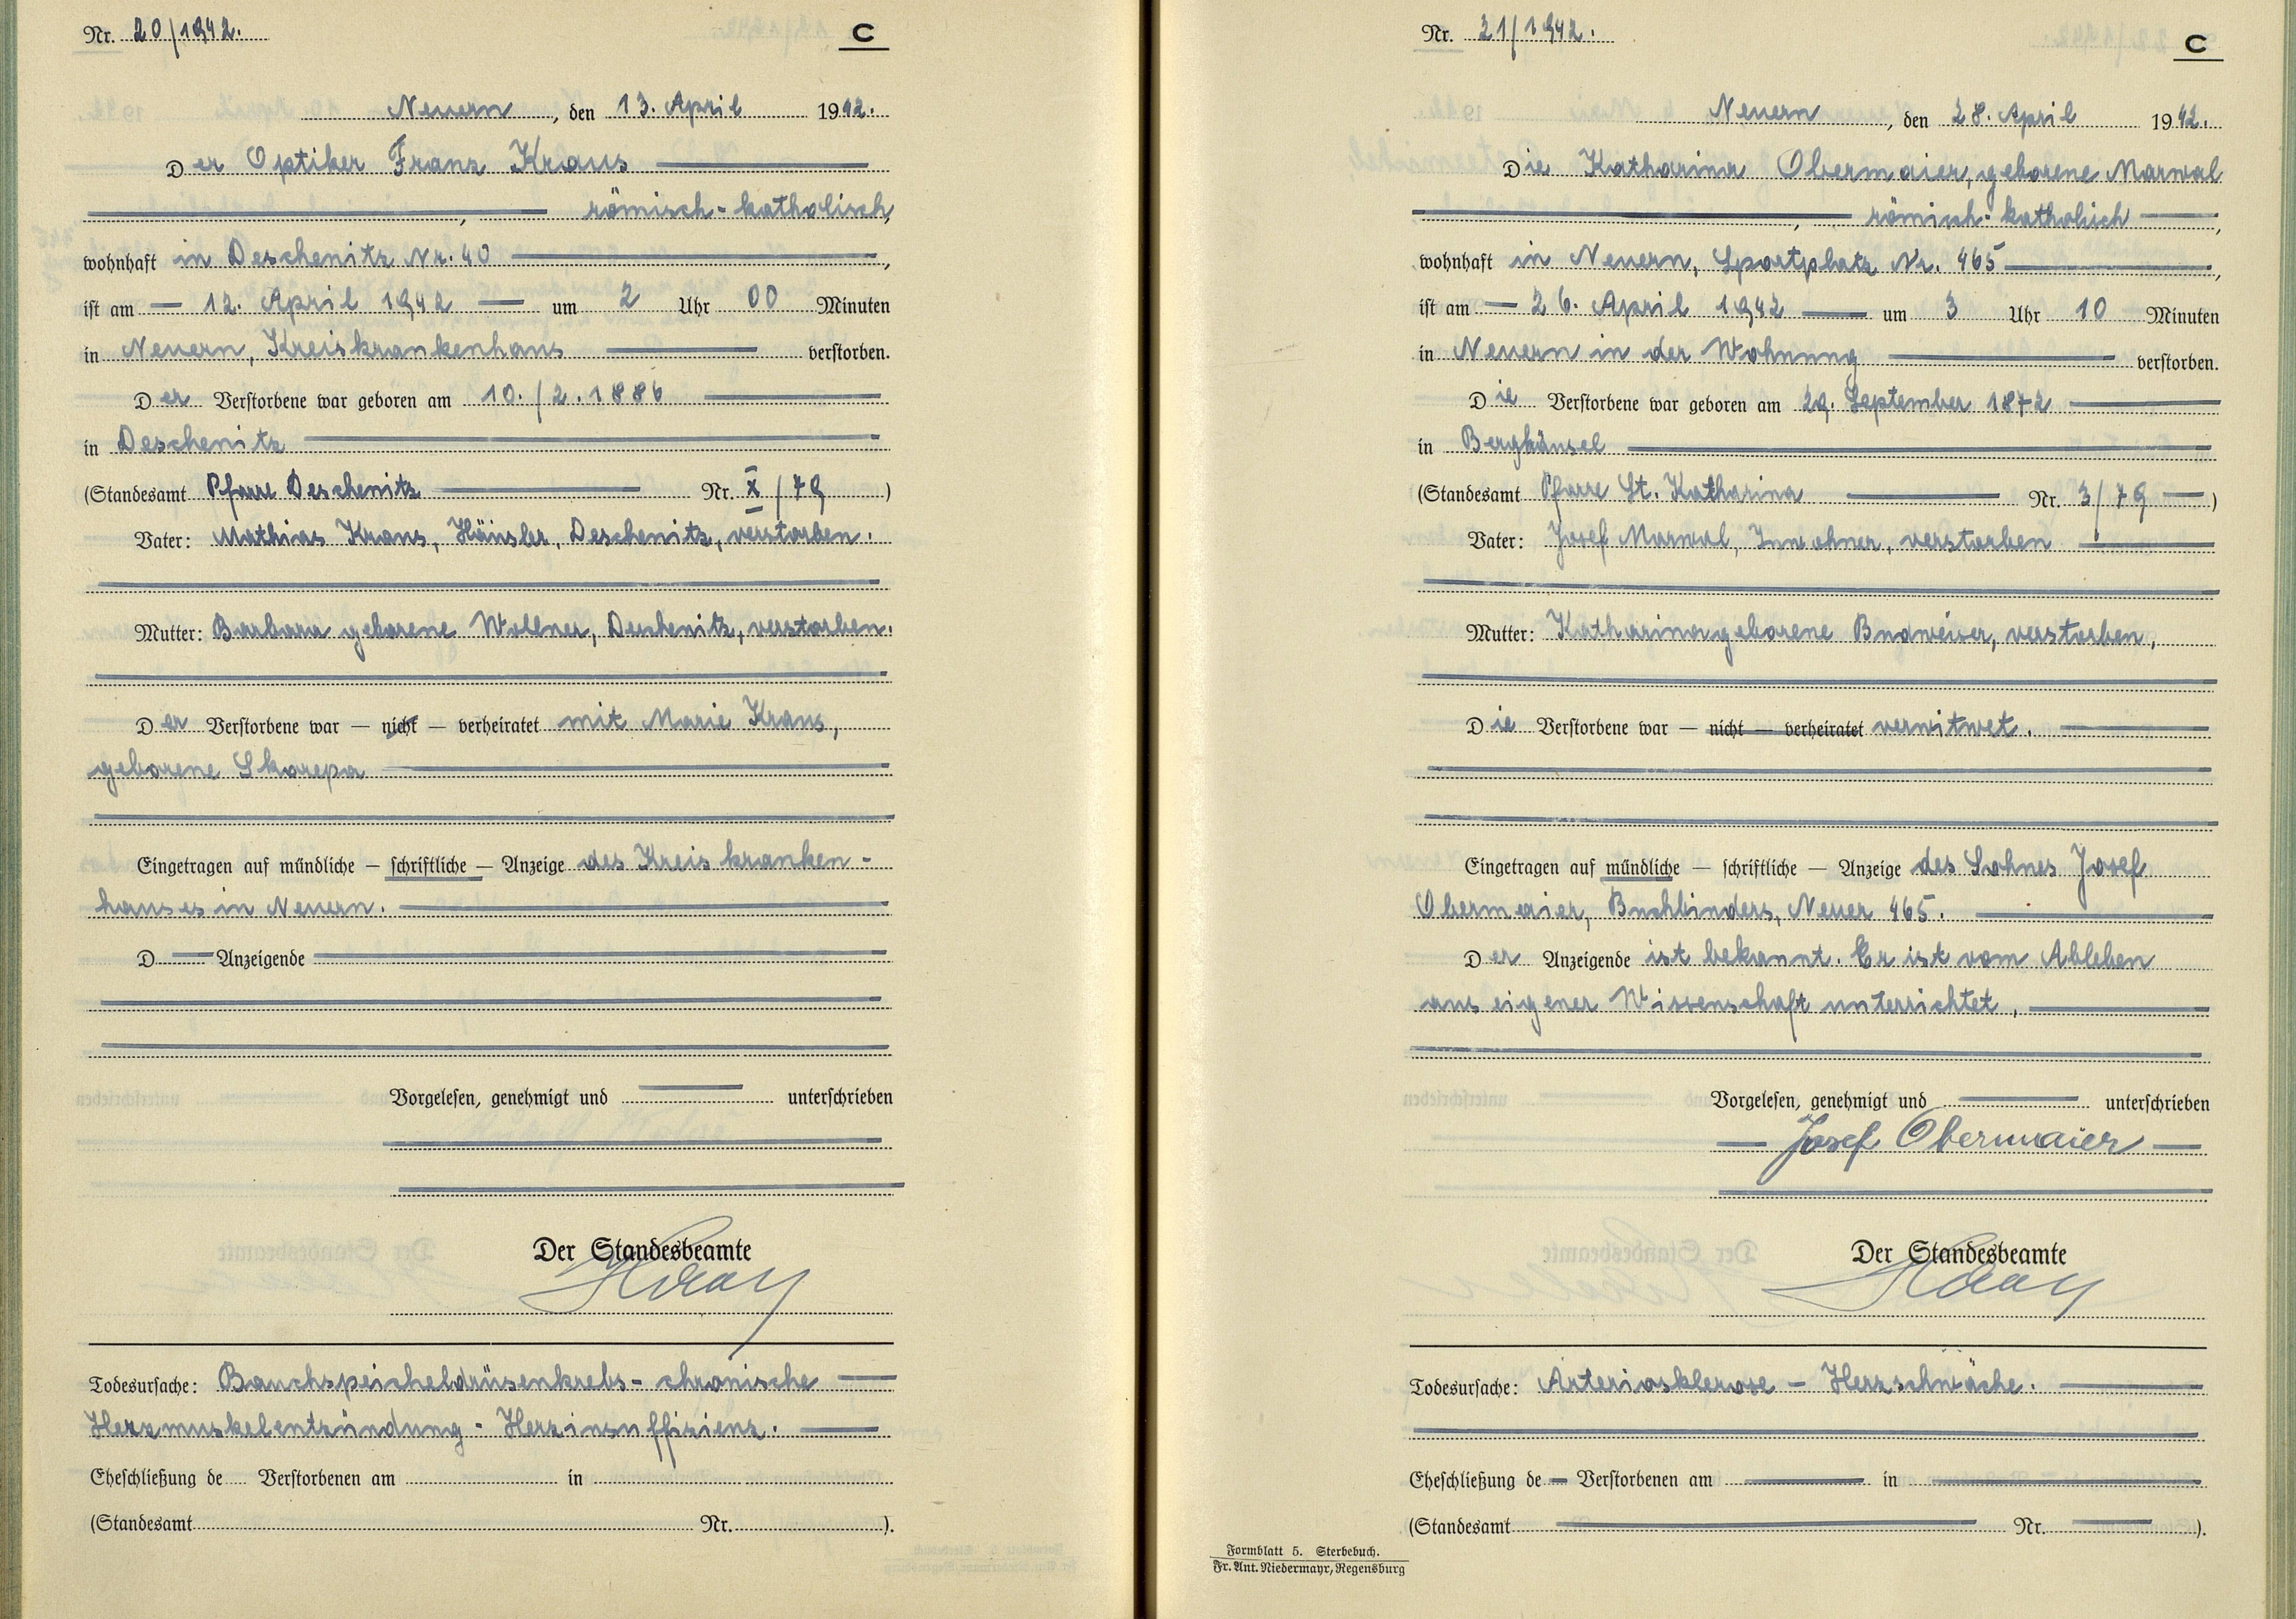 Nr. 20/1942.
C
Neuern, den 13. April 1942.
Der Optiker Franz Kraus
, römisch-katholisch,
wohnhaft in Deschenitz Nr. 40,
ist am — 12. April 1942 — um 2 Uhr 00 Minuten
in Neuern, Kreiskrankenhaus verstorben.
Der Verstorbene war geboren am 10./2.1886
in Deschenitz
(Standesamt Pfarre Deschenitz Nr. X/79)
Vater: Mathias Kraus, Häusler, Deschenitz, verstorben.
Mutter: Barbara geborene Wollner, Deschenitz, verstorben.
Der Verstorbene war — nicht — verheiratet mit Marie Kraus,
geborene Skorepa
Eingetragen auf mündliche — schriftliche — Anzeige des Kreiskranken-
hauses in Neuern.
D Anzeigende
Vorgelesen, genehmigt und unterschrieben
Der Standesbeamte
Todesursache: Bauchspeicheldrüsenkrebs - chronische
Herzmuskelentzündung - Herzinsuffizienz.
Eheschließung de Verstorbenen am in
(Standesamt Nr. ).
Nr. 21/1942.
C
Neuern, den 28. April 1942.
Die Katharina Obermaier, geborene Marwal
, römisch-katholich,
wohnhaft in Neuern, Sportplatz Nr. 465,
ist am — 26. April 1942 — um 3 Uhr 10 Minuten
in Neuern in der Wohnung verstorben.
Die Verstorbene war geboren am 29. September 1872
in Berghäusel
(Standesamt Pfarre St. Katharina Nr. 3/79)
Vater: Josef Marwal, Inwohner, verstorben
Mutter: Katharina geborene Budweiser, verstorben,
Die Verstorbene war — nicht — verheiratet verwitwet.
Eingetragen auf mündliche — schriftliche — Anzeige des Sohnes Josef
Obermaier, Buchbinders, Neuer 465.
Der Anzeigende ist bekannt. Er ist vom Ableben
aus eigener Wissenschaft unterrichtet,
Vorgelesen, genehmigt und unterschrieben
— Josef Obermaier —
Der Standesbeamte
Todesursache: Arteriosklerose - Herzschwäche.
Eheschließung de Verstorbenen am in
(Standesamt Nr. ).
Formblatt 5. Sterbebuch.
Fr. Ant. Niedermayr, Regensburg